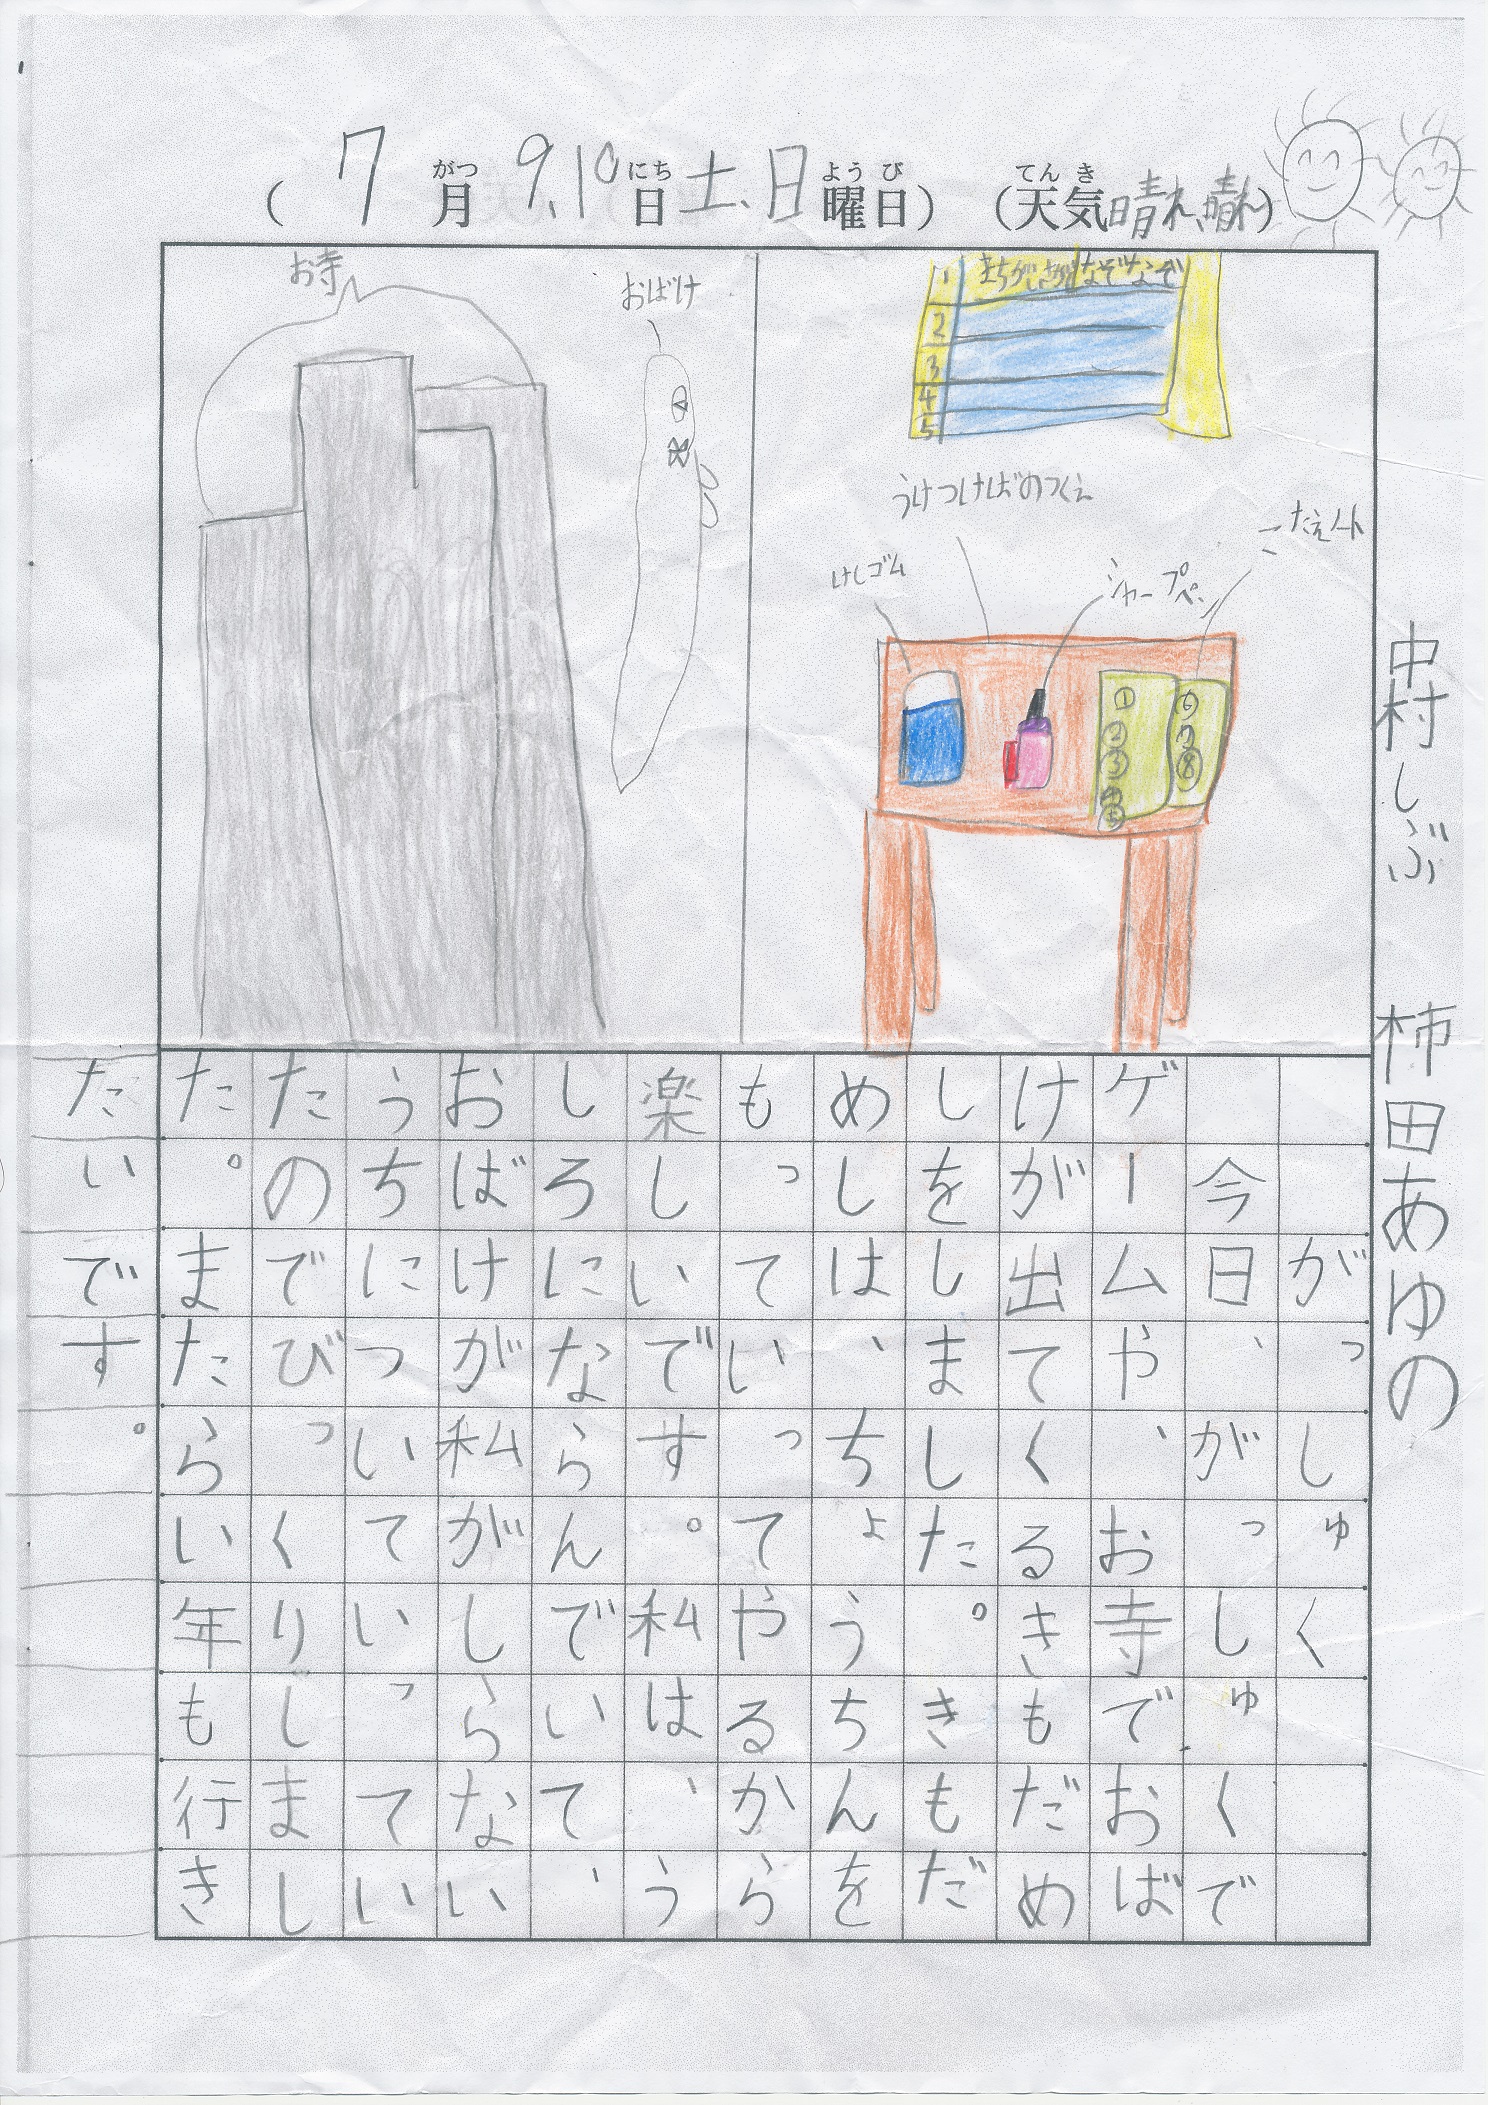 （7月9、10日土、日曜日）（天気晴れ、晴れ）
がつ にち ようび てんき
中村しぶ 柿田あゆの
お寺
おばけ
1 まちがいさがし なぞなぞ
2
3
4
5
うけつけばのつくえ
けしゴム
シャープペン
こたえノート
① ② ③ ④ ⑤
⑥ 7 ⑧
がっしゅく
今日、がっしゅくで
ゲームや、お寺でおば
けが出てくるきもだめ
しをしました。きもだ
めしは、ちょうちんを
もっていってやるから
楽しいです。私は、う
しろにならんでいて、
おばけが私がしらない
うちについていってい
たのでびっくりしまし
た。またらい年も行き
たいです。